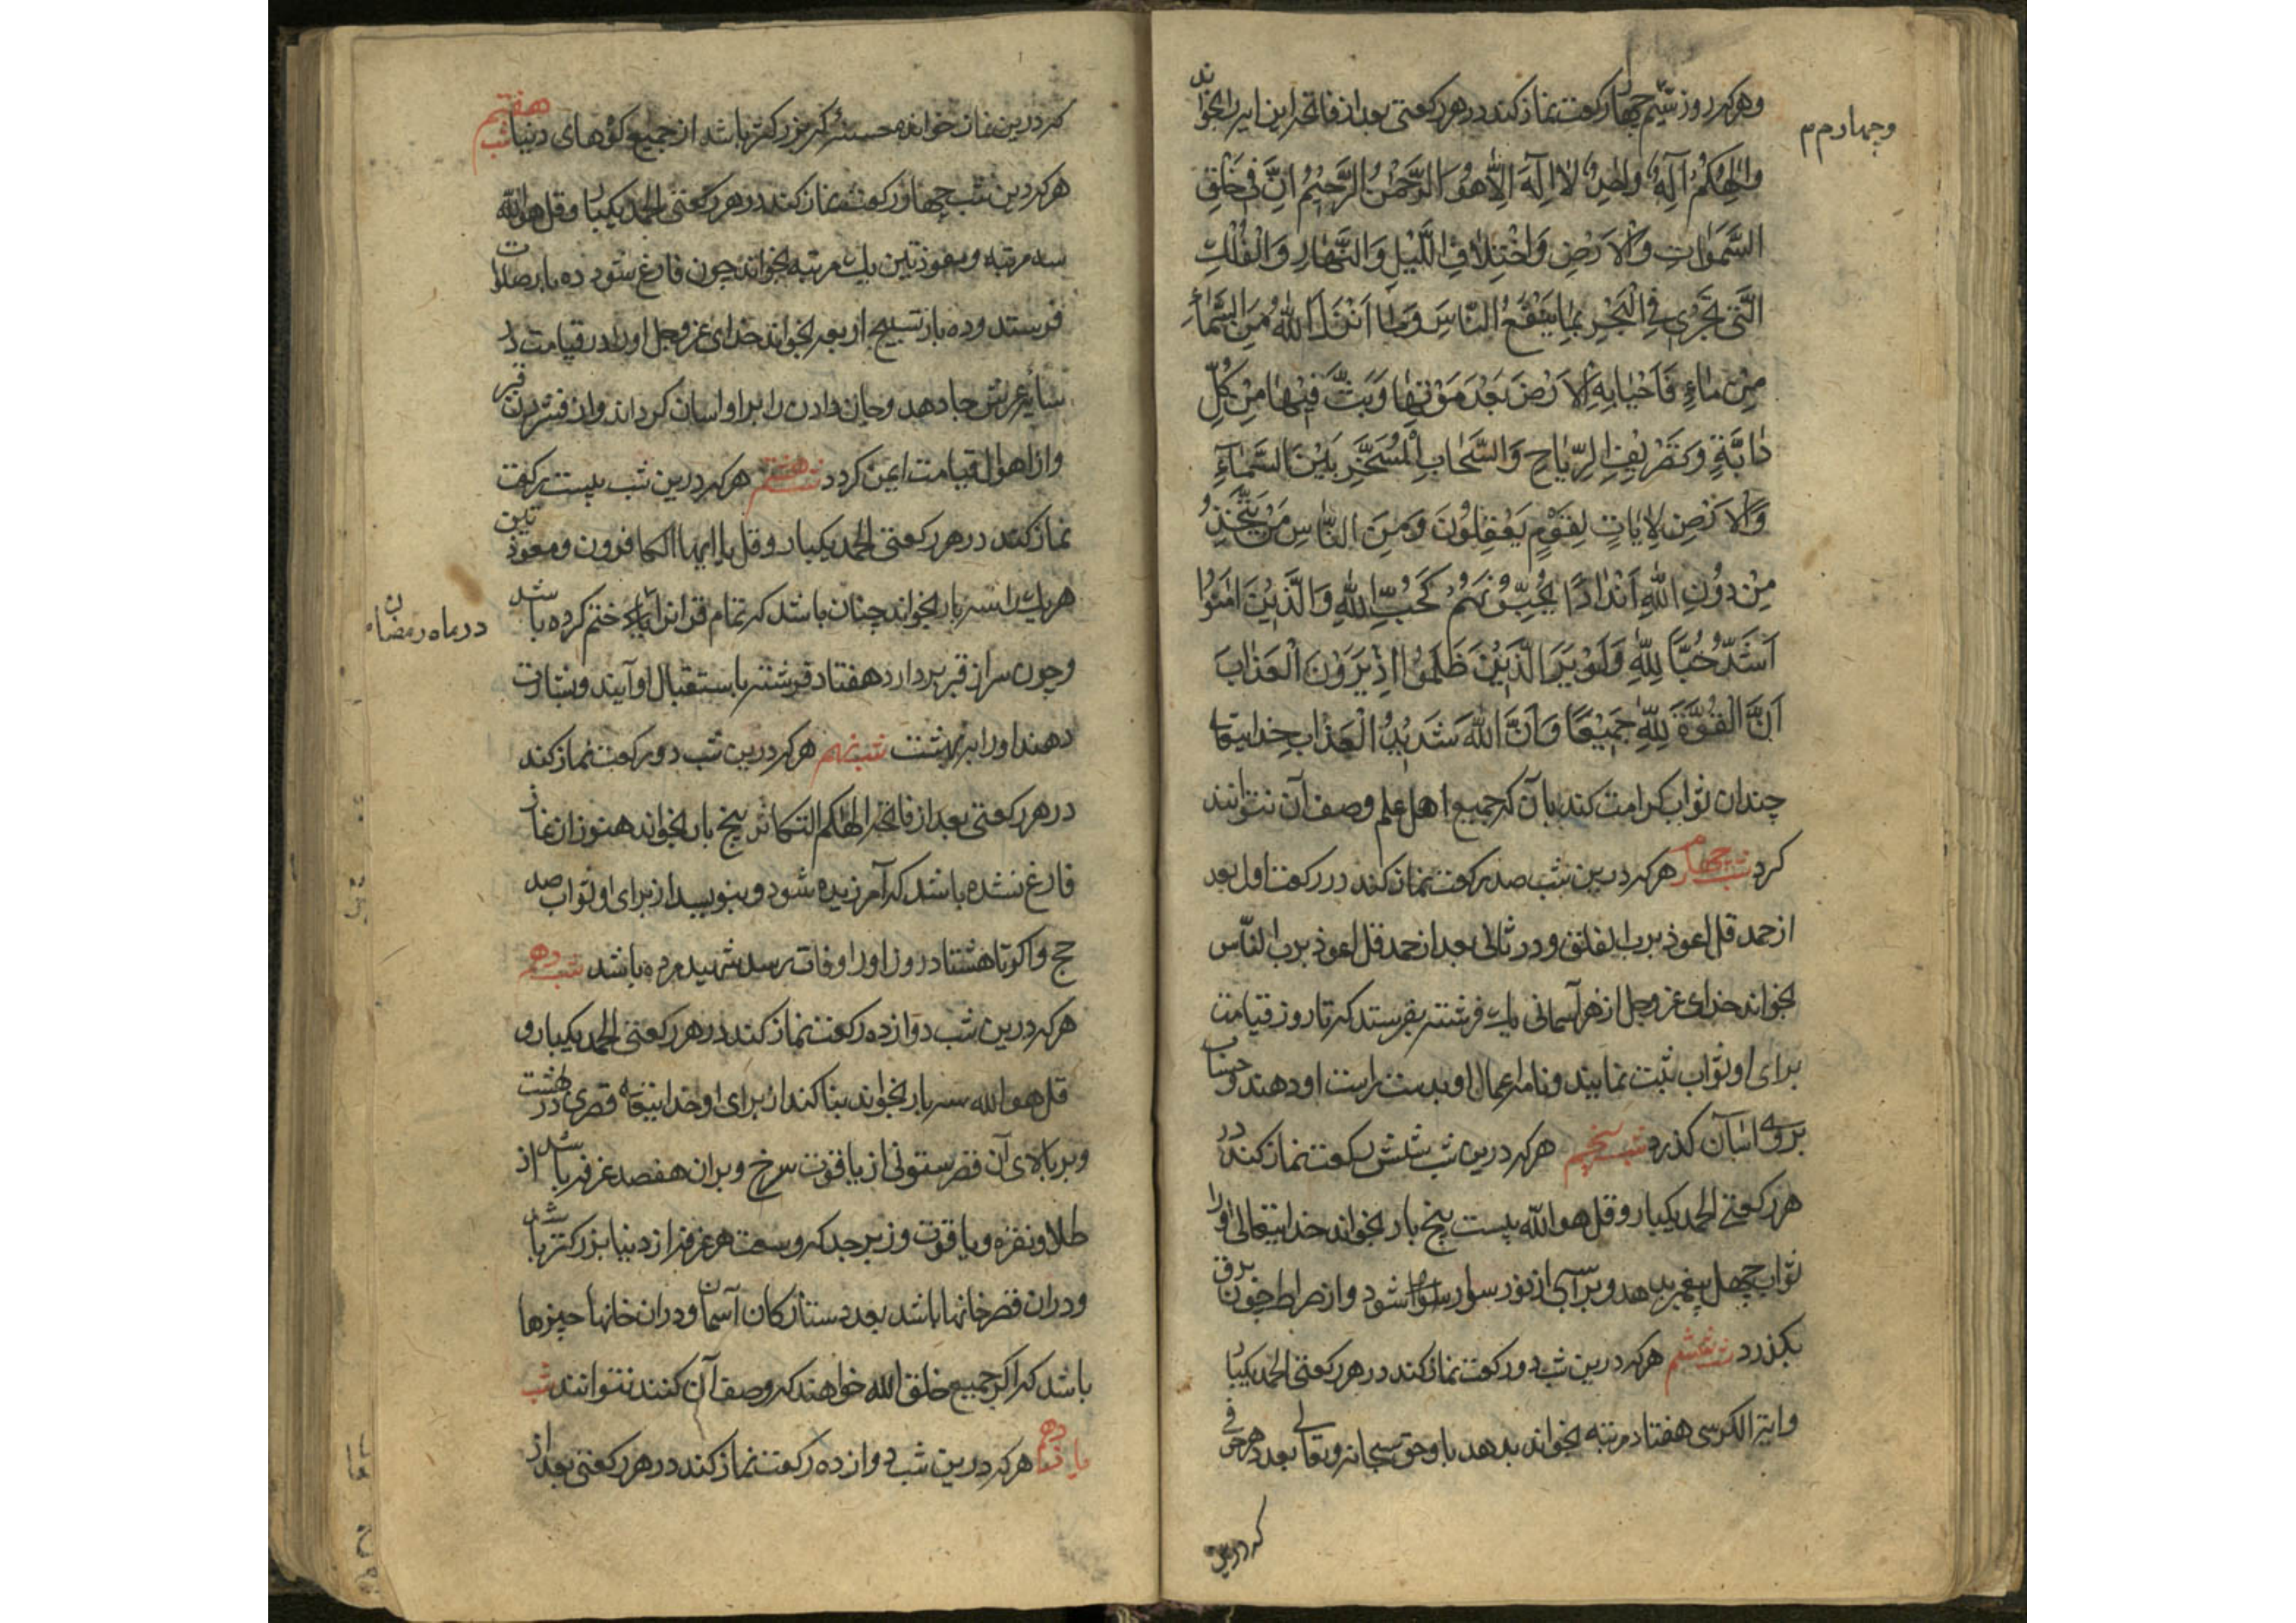 وهرکه روز سیّم چهار رکعت نماز کند در هر رکعتی بعد از فاتحه این ایه را بخواند
وچهارم م
وَاِلٰهُکُمْ اِلٰهٌ وٰاحِدٌ لٰا اِلٰهَ اِلَّا هُوَ الرَّحْمٰنُ الرَّحِیْمُ اِنَّ فِی خَلْقِ
السَّمٰوٰاتِ وَالْاَرْضِ وَاخْتِلٰافِ اللَّیْلِ وَالنَّهٰارِ وَالْفُلْكِ
الَّتِی تَجْرِی فِی الْبَحْرِ بِمٰا یَنْفَعُ النّٰاسَ وَمٰا اَنْزَلَ اللّٰهُ مِنَ السَّمٰاءِ
مِنْ مٰاءٍ فَاَحْیٰا بِهِ الْاَرْضَ بَعْدَ مَوْتِهٰا وَبَثَّ فِیْهٰا مِنْ کُلِّ
دٰابَّةٍ وَتَصْرِیْفِ الرِّیٰاحِ وَالسَّحٰابِ الْمُسَخَّرِ بَیْنَ السَّمٰاءِ
وَالْاَرْضِ لَاٰیٰاتٍ لِقَوْمٍ یَعْقِلُوْنَ وَمِنَ النّٰاسِ مَنْ یَتَّخِذُ
مِنْ دُوْنِ اللّٰهِ اَنْدٰادًا یُحِبُّوْنَهُمْ کَحُبِّ اللّٰهِ وَالَّذِیْنَ اٰمَنُوْا
اَشَدُّ حُبًّا لِلّٰهِ وَلَوْ یَرَی الَّذِیْنَ ظَلَمُوْا اِذْ یَرَوْنَ الْعَذٰابَ
اَنَّ الْقُوَّةَ لِلّٰهِ جَمِیْعًا وَاَنَّ اللّٰهَ شَدِیْدُ الْعَذٰابِ خدایتعا
چندان ثواب کرامت کند بان که جمیع اهل علم وصف آن نتوانند
کرد شب چهارم هرکه درین شب صد رکعت نماز کند در رکعت اول بعد
از حمد قل اعوذ برب الفلق و در ثانی بعد از حمد قل اعوذ برب الناس
بخواند خدای عز وجل از هر آسمانی یك فرشته بفرستد که تا روز قیامت
برای او ثواب ثبت نمایند و نامه اعمال او بدست راست او دهند و حساب
بروی اسان کذرد شب پنجم هرکه درین شب شش رکعت نماز کند در
هر رکعتی الحمد یکبار و قل هو الله بیست پنج بار بخواند خدایتعالی او را
ثواب چهل پیغمبر بدهد و بر اسبی از نور سوار شود و از صراط چون برق
بکذرد شب ششم هرکه درین شب دو رکعت نماز کند در هر رکعتی الحمد یکبار
وایة الکرسی هفتاد مرتبه بخواند بدهد باو حق سبحانه وتعالی بعدد هر حرفی
که درین
که درین نماز خوانده حسنهٔ که بزرکتر باشد از جمیع کوههای دنیا شب هفتم
هرکه درین شب چهار رکعت نماز کند در هر رکعتی الحمد یکبار و قل هو الله
سه مرتبه و معوذتین یك مرتبه بخواند چون فارغ شود ده بار صلوات
فرستد و ده بار تسبیح اربعه بخواند خدای عز وجل او را در قیامت در
سایه عرش جا دهد و جان دادن را بر او اسان کرداند و از فشردن قبر
و از اهوال قیامت ایمن کردد شب هشتم هرکه درین شب بیست رکعت
نماز کند در هر رکعتی الحمد یکبار و قل یا ایها الکافرون و معوذتین
هر یك را سه بار بخواند چنان باشد که تمام قران را ختم کرده باشد
در ماه رمضان
و چون سر از قبر بردارد هفتاد فرشته باستقبال او آیند و بشارت
دهند او را به بهشت شب نهم هرکه درین شب دو رکعت نماز کند
در هر رکعتی بعد از فاتحه الهیکم التکاثر پنج بار بخواند هنوز از نماز
فارغ نشده باشد که آمرزیده شود و بنویسد از برای او ثواب صد
حج و اکر تا هشتاد روز او را وفات برسد شهید مرده باشد شب دهم
هرکه درین شب دوازده رکعت نماز کند در هر رکعتی الحمد یکبار و
قل هو الله سه بار بخواند بنا کند از برای او خدایتعا قصری در بهشت
و بر بالای آن قصر ستونی از یاقوت سرخ و بران هفصد غرفه باشد از
طلا و نقره و یاقوت و زبرجد که وسعت هر غرفه از دنیا بزرکتر باشد
و دران قصر خانها باشد بعدد ستارکان آسمان و دران خانها چیزها
باشد که اکر جمیع خلق الله خواهند که وصف آن کنند نتوانند شب
یازدهم هرکه درین شب دوازده رکعت نماز کند در هر رکعتی بعد از